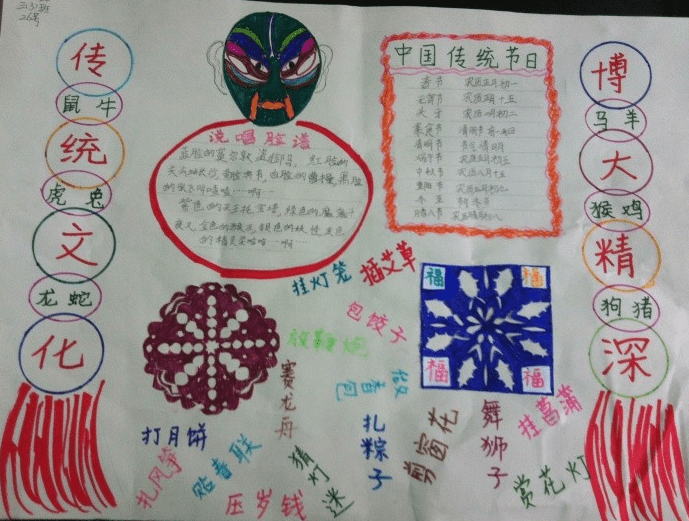 三.3)班
26号
传
鼠 牛
统
虎 兔
文
龙 蛇
化
说唱脸谱
蓝脸的窦尔敦盗御马 红脸的
关公战长沙 黄脸典韦 白脸的曹操 黑脸
的张飞叫喳喳……啊…
紫色的天王托宝塔 绿色的魔鬼斗
夜叉 金色的猴王 银色的妖怪 灰色
的精灵笑哈哈…啊……
中国传统节日
春节 农历正月初一
元宵节 农历正月十五
农历二月初二
寒食节 清明节前一日
清明节
端午节 农历五月初五
中秋节 农历八月十五
重阳节
冬至
腊八节 农历腊月初八
博
马 羊
大
猴 鸡
精
狗 猪
深
挂灯笼
插艾草
包饺子
放鞭炮
赛龙舟
福 福
福 福
打月饼
扎风筝
贴春联
压岁钱
猜灯迷
扎粽子
剪窗花
舞狮子
挂菖蒲
赏花灯